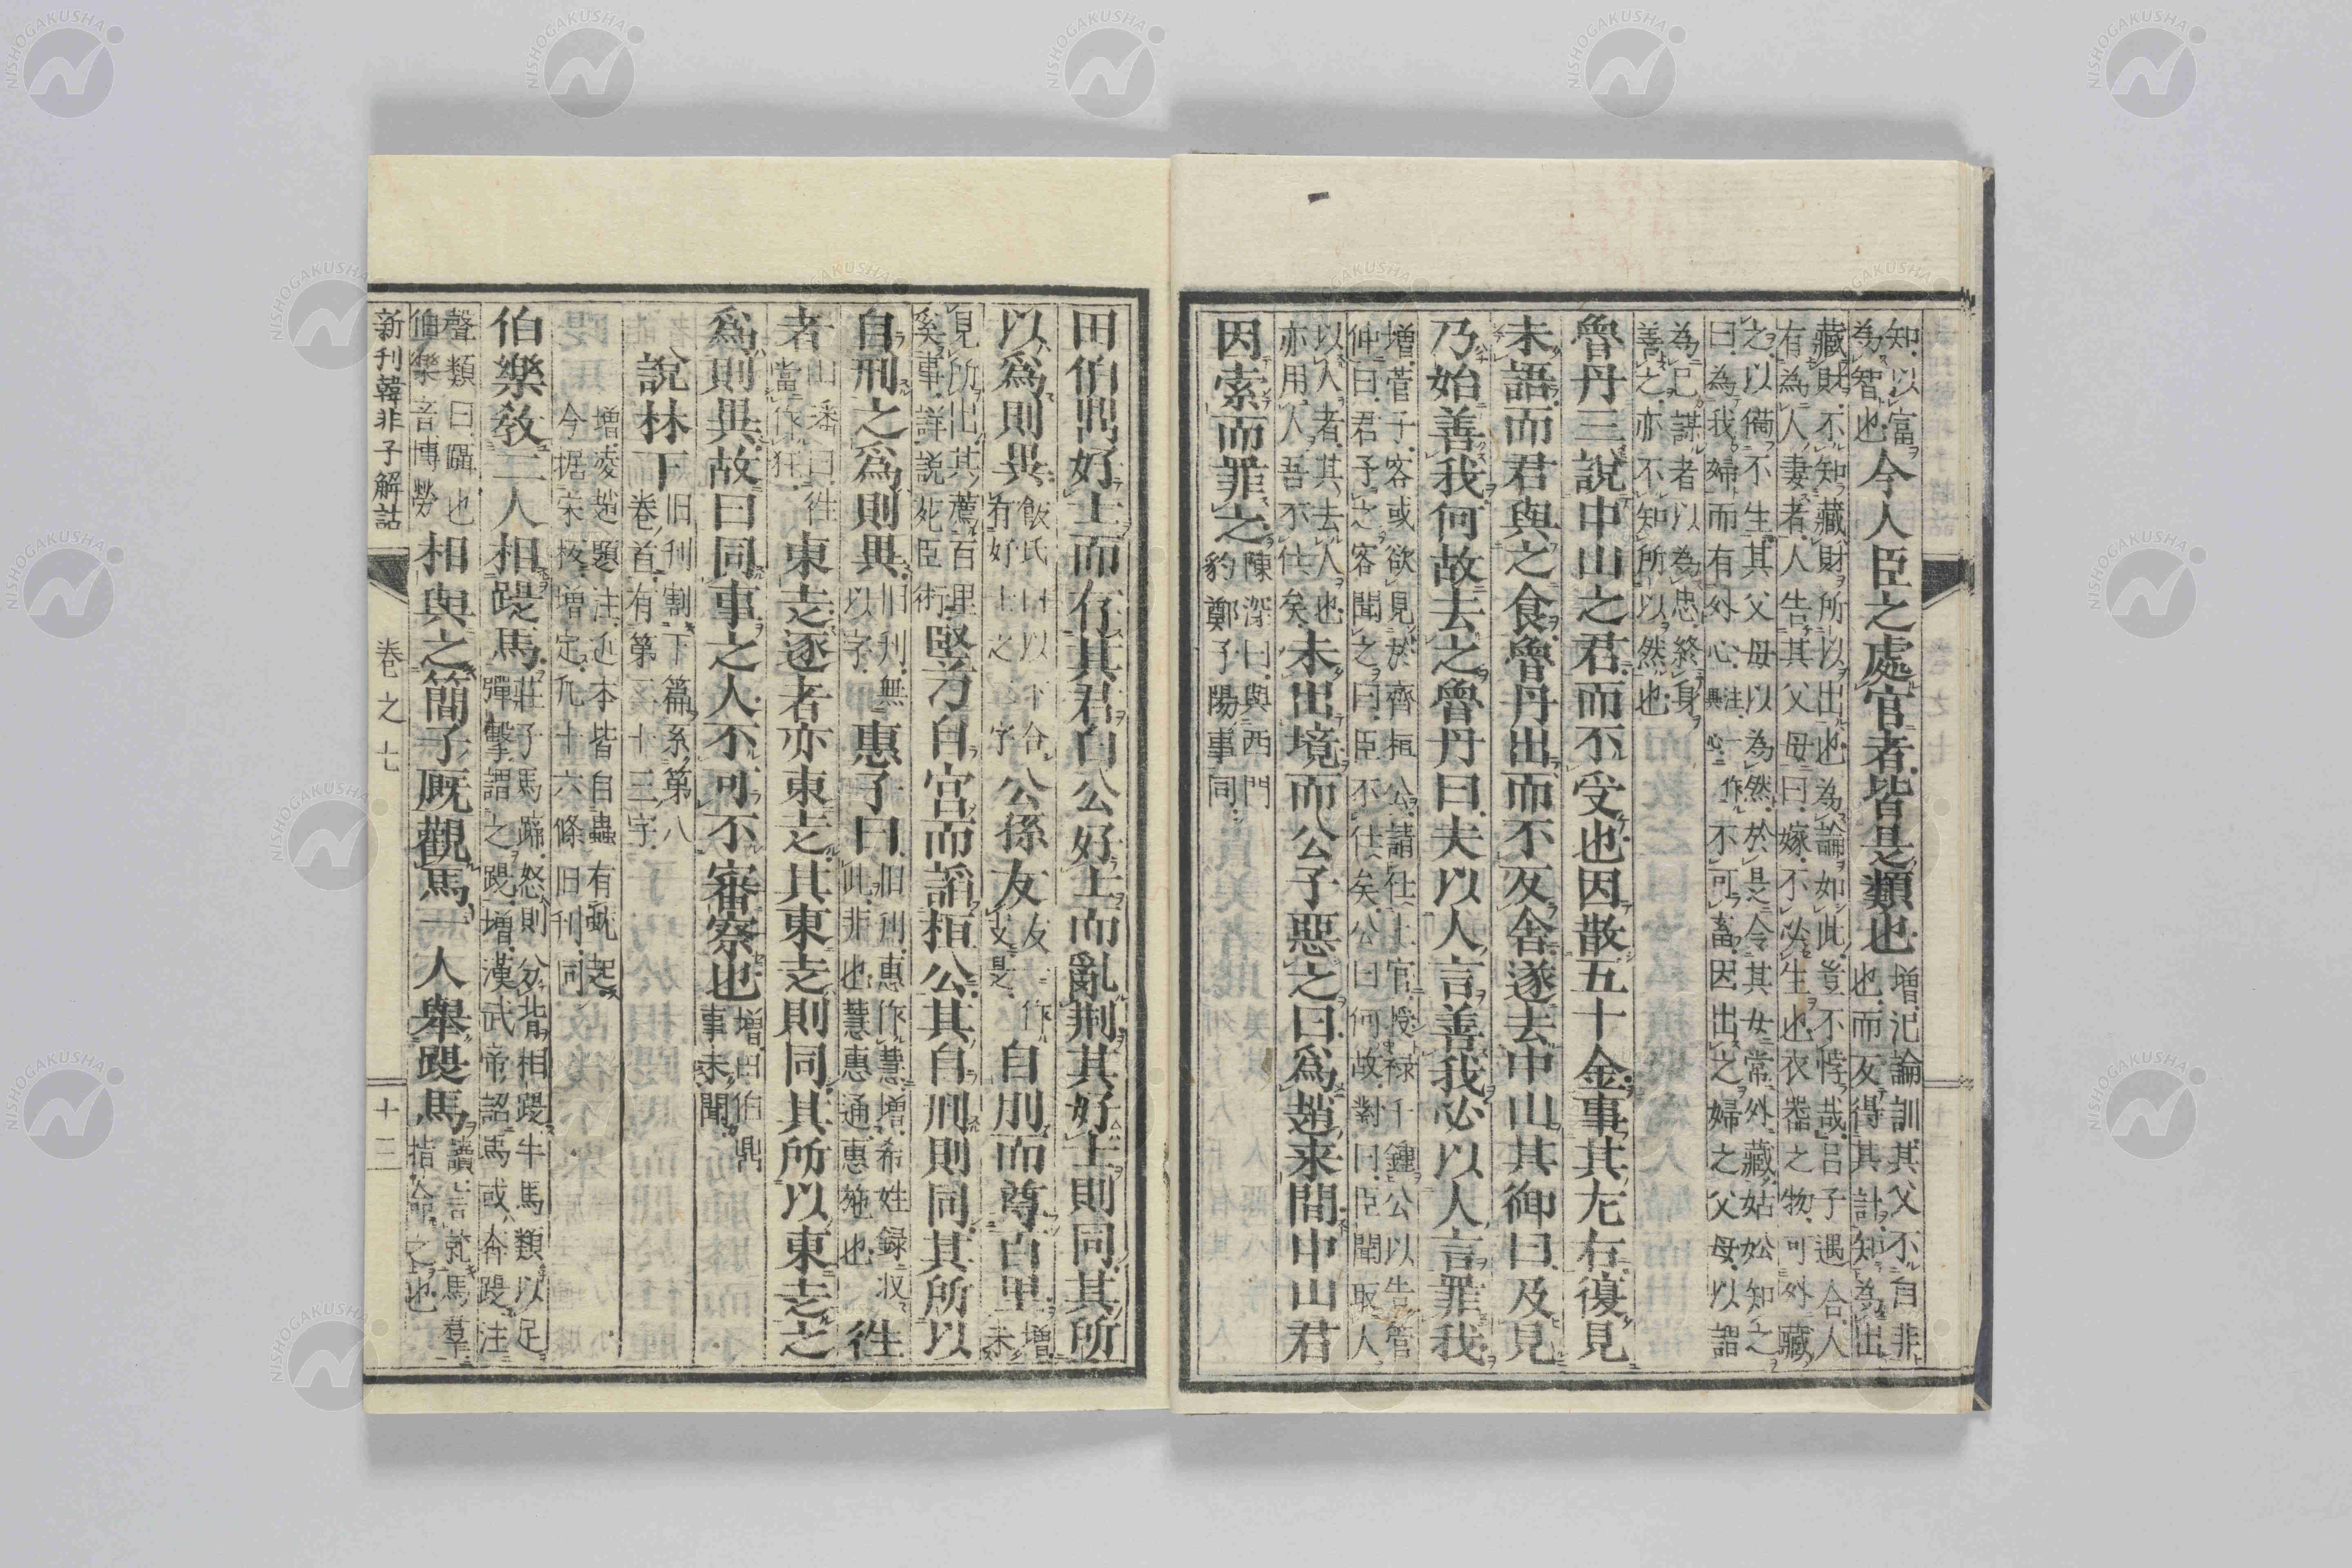 知以富
為智也今人臣之處官者皆是類也增氾論訓其父不自非
也而反得其計知為出
藏財不知藏財所以出也為論如此豈不悖哉呂子遇合人
有為人妻者人告其父母曰嫁不必生也衣器之物可外藏
之以備不生其父母以為然於是令其女常外藏姑妐知之
曰為我婦而有外心不可畜因出之婦之父母以謂
為己謀者以為忠終身
善之亦不知所以然也
魯丹三說中山之君而不受也因散五十金事其左右復見
未語而君與之食魯丹出而不反舍遂去中山其御曰及見
乃始善我何故去之魯丹曰夫以人言善我必以人言罪我
增管子客或欲見於齊桓公請仕上官授祿千鍾公以告管
仲曰君予之客聞之曰臣不仕矣公曰何故對曰臣聞取人
以人者其去人也
亦用人吾不仕矣未出境而公子惡之曰為趙来間中山君
因索而罪之陳深曰與西門
豹鄭子陽事同
田伯鼎好士而存其君白公好士而亂荊其好士則同其所
以為則異
有好士之字公孫友自刖而尊百里增未
見所出其薦百里
奚事詳說苑臣術豎刁自宮而諂桓公其自刑則同其所以
自刑之為則異旧刊無
以字惠子曰旧刊惠作慧增希姓録収
此非也慧惠通惠施也徃
者山璠曰徃
當作狂東走逐者亦東走其東走則同其所以東走之
為則異故曰同事之人不可不審察也增田伯鼎
事未聞
說林下旧刊割下篇系第八
卷首有第二十三字
增凌趙題注近本皆自蟲有虺起
今据宋校增定凡十六條旧刊同
伯樂教二人相踶馬莊子馬蹄怒則分背相踶牛馬類以足
彈擊謂之踶增漢武帝詔馬或奔踶注
聲類曰躡也
伯樂音博勞相與之簡子厩觀馬一人舉踶馬讀言就馬羣
指命之也
新刊韓非子解詁　卷之七　十二